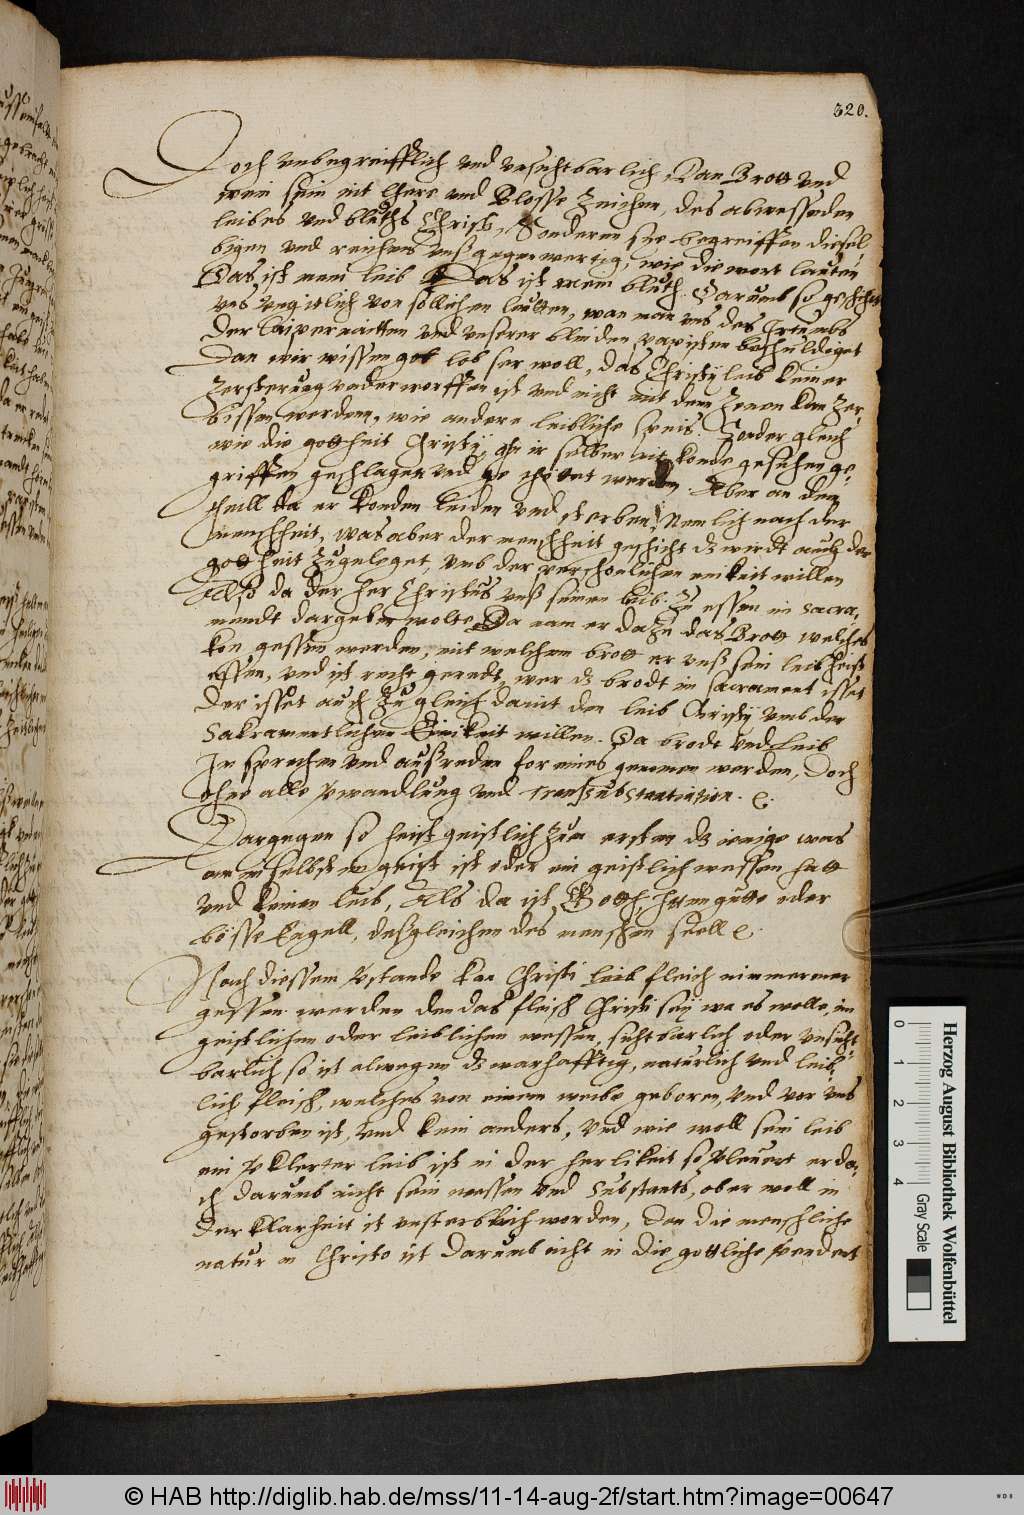 320.
Doch unbegreifflich und unsichtbarlich, Dan Brott und
wein sein nit lhere und Blosse Zeichen, des abwessenden
leibes und bluths Christi, Sonderen sye begreiffen diesel
bigen und reichens uns gegenwertig, wie die wort lauten
Das ist mein leib Das ist mein bluth. Darumb so geschicht
uns ungütlich von sollichen leutten, wan man uns des Irtumbs
der Capernaitten und unserer blinden papisten beschuldiget
Dan wir wissen got lob ser woll, das Christj leib keiner
Zersterung underworffen ist und nicht mit den Zenen kan Zer
bissen werden, wie andere leibliche speis, Sonder gleich
wie die gottheit Christj, in ir selber nit konde gesehen ge
griffen geschlagen und gethötet werden. Aber an dem
theill da er konden leiden und sterben, Nemlich nach der
menschheit, was aber der menschheit geschicht dz wirdt auch der
gottheit Zugeleget, umb der personlichen einikeit willen
Also da der her Christus uns seinen leib Zu essen im Sacra,
mendt dargeben wolte, Da nam er dazu das Brott welches
kon gessen werden, mit welchem brott er uns sein leib heist
essen, und ist recht geredt, wer dz brodt im sacrament isset
der isset auch Zugleich damit den leib Cristj umb der
Sakramentlichen Einikeit willen. Da brodt und leib
In sprechen und ausreden for eines genomen werden, Doch
ohne alle verwandlung und transsubstantiation. &c.
Dargegen so heist geistlich Zum ersten dz ienige was
an im selbsten geist ist oder ein geistlich wessen hatt
und keinen leib, Als da ist Gott, Item gutte oder
bösse Engell, desgleichen des menschen seell &c.
Nach diessem verstande kan Christi leib fleich nimmermer
gessen werden den das fleisch Christi sey wa es wolle, im
geistlichen oder leiblichen wessen, sichtbarlich oder unsicht
barlich so ist alwegen dz warhafftig, naturlich und leib,
lich fleisch, welches von einem weibe geboren, und vor uns
gestorben ist, und kein anders, und wie woll sein leib
ein verklerter leib ist in der herlikeit so verleuert er do,
ch darumb nicht sein wessen und substants, ober woll in
der klarheit ist unsterblich worden, Den die menschliche
natur in Christo ist darumb nicht in die gottliche verendert
Herzog August Bibliothek Wolfenbüttel
0 1 2 3 4
Gray Scale
© HAB http://diglib.hab.de/mss/11-14-aug-2f/start.htm?image=00647